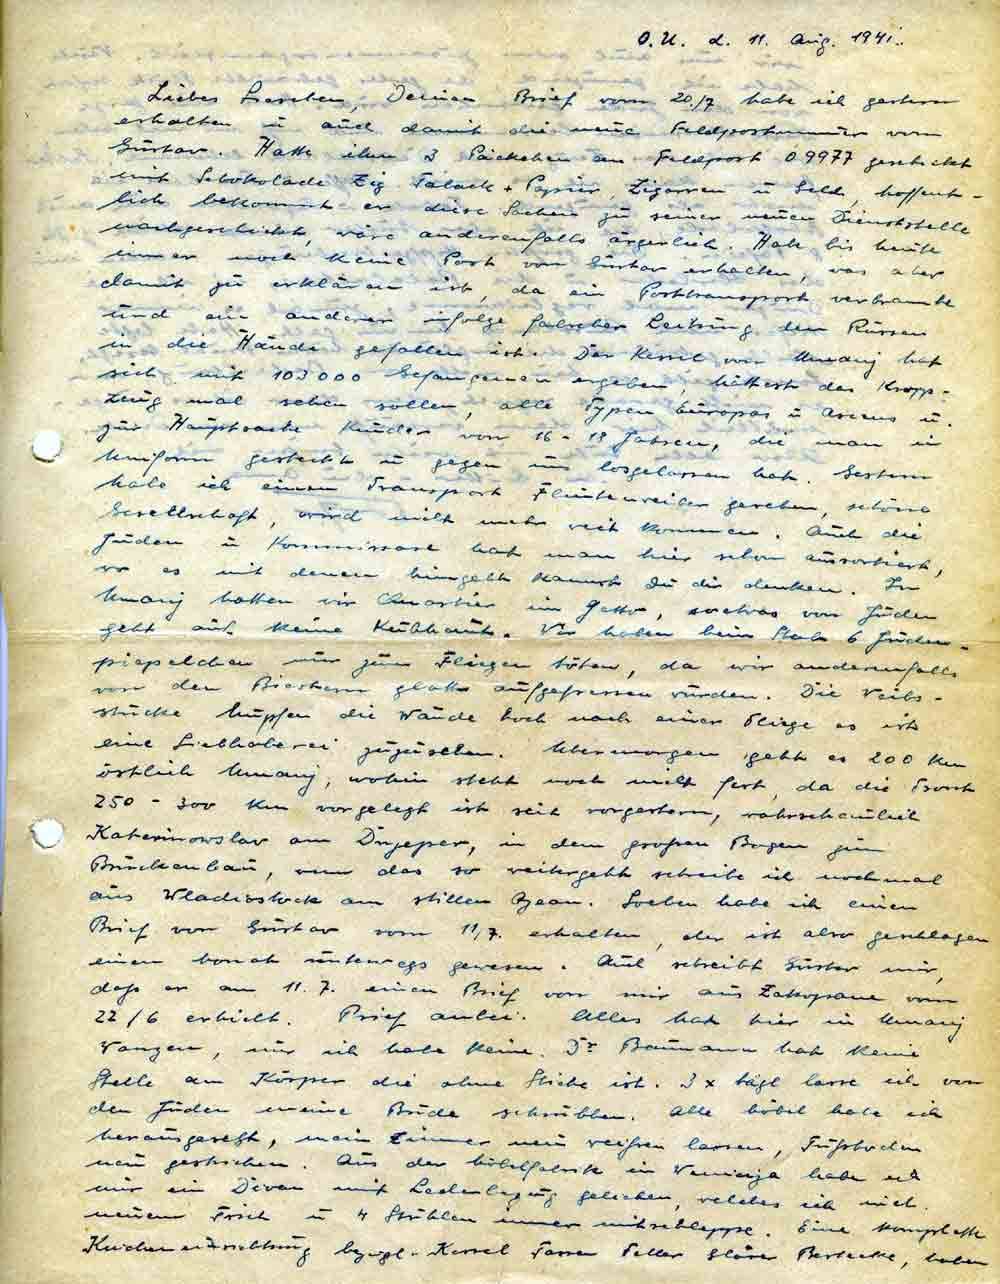 O.U. d. 11. Aug. 1941.
Liebes Lieschen, Deinen Brief vom 20/7 habe ich gestern
erhalten u auch damit die neue Feldpostnummer vom
Gustav. Hatte ihm 3 Päckchen an Feldpost 09977 geschickt
mit Schokolade Zig. Taback + Papier, Zigarren u Geld, hoffent-
lich bekommt er diese Sachen zu seiner neuen Dienststelle
nachgeschickt, wäre anderenfalls ärgerlich. Habe bis heute
immer noch keine Post von Gustav erhalten, was aber
damit zu erklären ist, da ein Posttransport verbrannte
und ein anderer infolge falscher Leitung den Russen
in die Hände gefallen ist. Der Kessel von Umanj hat
sich mit 103000 Gefangenen ergeben, hättest das Kropp-
zeug mal sehen sollen, alle Typen Europas u Asiens u.
zur Hauptsache Kinder von 16-18 Jahren, die man in
Uniform gesteckt u gegen uns losgelassen hat. Gestern
habe ich einen Transport Flintenweiber gesehen, schöne
Gesellschaft, wird nicht mehr weit kommen. Auch die
Juden u Kommissare hat man hier schon aussortiert,
wo es mit denen hingeht kannst Du dir denken. In
Umanj hatten wir Quartier im Getto, sowas von Juden
geht auf keine Kuhhaut. Wir haben beim Stab 6 Juden-
nur zum Fliegen töten, da wir anderenfalls
von den Biestern glatt aufgefressen würden. Die Weibs-
stücke hupfen die Wände hoch nach einer Fliege es ist
eine Liebhaberei zuzusehen. Übermorgen geht es 200 Km
östlich Umanj, wohin steht noch nicht fest, da die Front
250 - 300 Km vorgelegt ist seit vorgestern, wahrscheinlich
Katerinowslav am Dnjeper, in dem großen Bogen zum
Brückenbau, wenn das so weitergeht schreibe ich nochmal
aus Wladiostock am stillen Ozean. Soeben habe ich einen
Brief von Gustav vom 11/7. erhalten, der ist also geschlagen
einen Monat unterwegs gewesen. Auch schreibt Gustav mir,
daß er am 11.7. einen Brief von mir aus Zakopane vom
22/6 erhielt. Brief anbei. Alles hat hier in Umanj
Wanzen, nur ich habe keine. Dr Baumann hat keine
Stelle am Körper die ohne Stiche ist. 3 x tägl lasse ich von
den Juden meine Bude schrubben. Alle Möbel habe ich
herausgesetzt, mein Zimmer neu weißen lassen, Fußboden
neu gestrichen. Aus der Möbelfabrik in habe ich
mir ein Divan mit geliehen, welches ich mit
neuem Tisch u 4 Stühlen immer mitschleppe. Eine komplette
Kücheneinrichtung bezügl. Kessel Tassen Teller Gläser Bestecke, haben